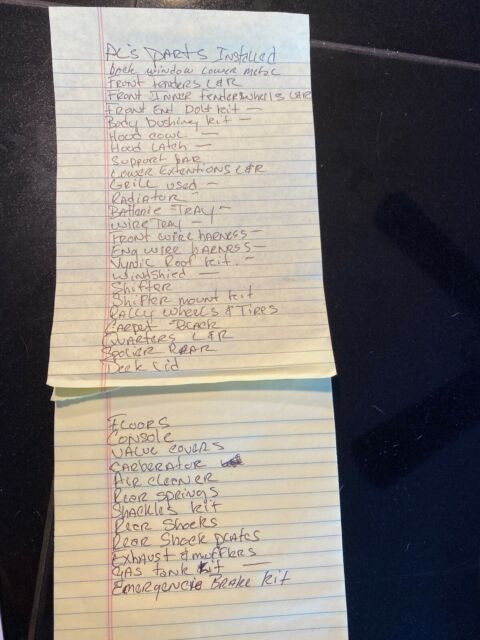 AL's PARTS Installed
Deck window Lower metal
Front fenders L&R
Front Inner fender wheels L&R
Front End Bolt kit -
Body bushing kit -
Hood cowl -
Hood Latch -
Support bar
Lower Extentions L&R
Grill used -
Radiator -
Batterie TRAY -
Wire TRAY -
Front wire harness -
Eng wire harness -
Vynic Roof kit. -
Windshied -
Shifter
Shifter mount kit
Rally wheels & Tires
Carpet Black
Quarters L&R
Spolier Rear
Deck Lid
Floors
Console
Value covers
Carberator
Air cleaner
Rear springs
Shackles kit
Rear Shocks
Rear Shock plates
Exhaust & mufflers
Gas tank kit -
Emergencie Brake kit